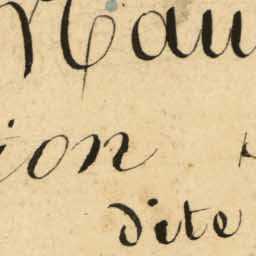 Nau
ion
dite